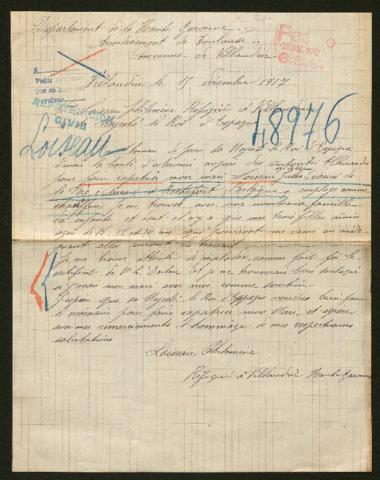 Département de la Haute Garonne
Arrondissement de Toulouse
Commune de Villaudric
Villaudric le 15 Décembre 1917
48976
Loiseau Philomène Réfugié à Villaudric
Majesté le Roi d'Espagne
CIVIL
Loiseau
J'ai l'honneur de Majesté le Roi d'Espagne
d'avoir la bonté d'intervenir auprès des autorités Allemandes
pour faire rapatrier mon mari Loiseau Jules
Belgique employé comme
chauffeur je me trouve avec une nombreuse famille
enfants et tout il n'y a que mes trois filles aînées
âgées de 18 et ans qui peuvent me venir en aide
quant elles auront du travail
je me trouve atteinte de maladie comme fait foi le
certificat de Mr le Docteur Et je me trouverais bien soulagée
si j'avais mon mari avec moi comme soutien
J'espère que sa Majesté le Roi d'Espagne voudra bien faire
le nécessaire pour faire rapatrier mon Mari et agréer
avec mes remerciements l'hommage de mes respectueuses
salutations
Loiseau Philomène
Réfugié à Villaudric Haute Garonne